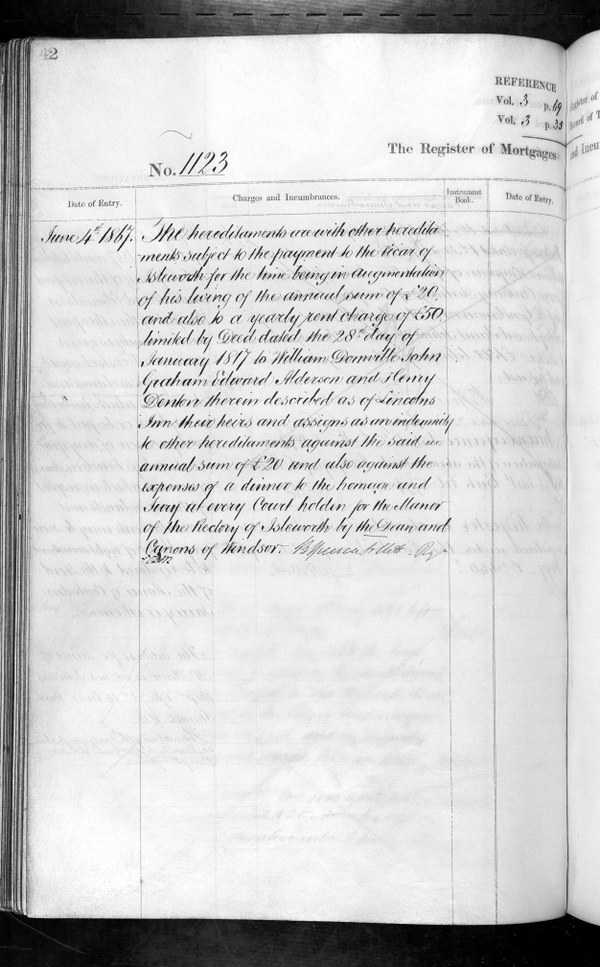 42
REFERENCE
Vol. 3 p. 69
Vol. 3 p. 33
The Register of Mortgages
No. 1123
Date of Entry.
Charges and Incumbrances.
Instrument
Book.
Date of Entry.
June 4th 1867.
The hereditaments are with other heredita
ments subject to the payment to the Vicar of
Isleworth for the time being in augmentation
of his living of the annual sum of £20,
and also to a yearly rent charge of £50,
limited by Deed dated the 28th day of
January 1817 to William Domville John
Graham Edward Alderson and Henry
Denton therein described as of Lincolns
Inn their heirs and assigns as an indemnity
to other hereditaments against the said
annual sum of £20 and also against the
expenses of a dinner to the homage and
Jury at every Court holden for the Manor
of the Rectory of Isleworth by the Dean and
Canons of Windsor.
Register of
Record of T
and Incu